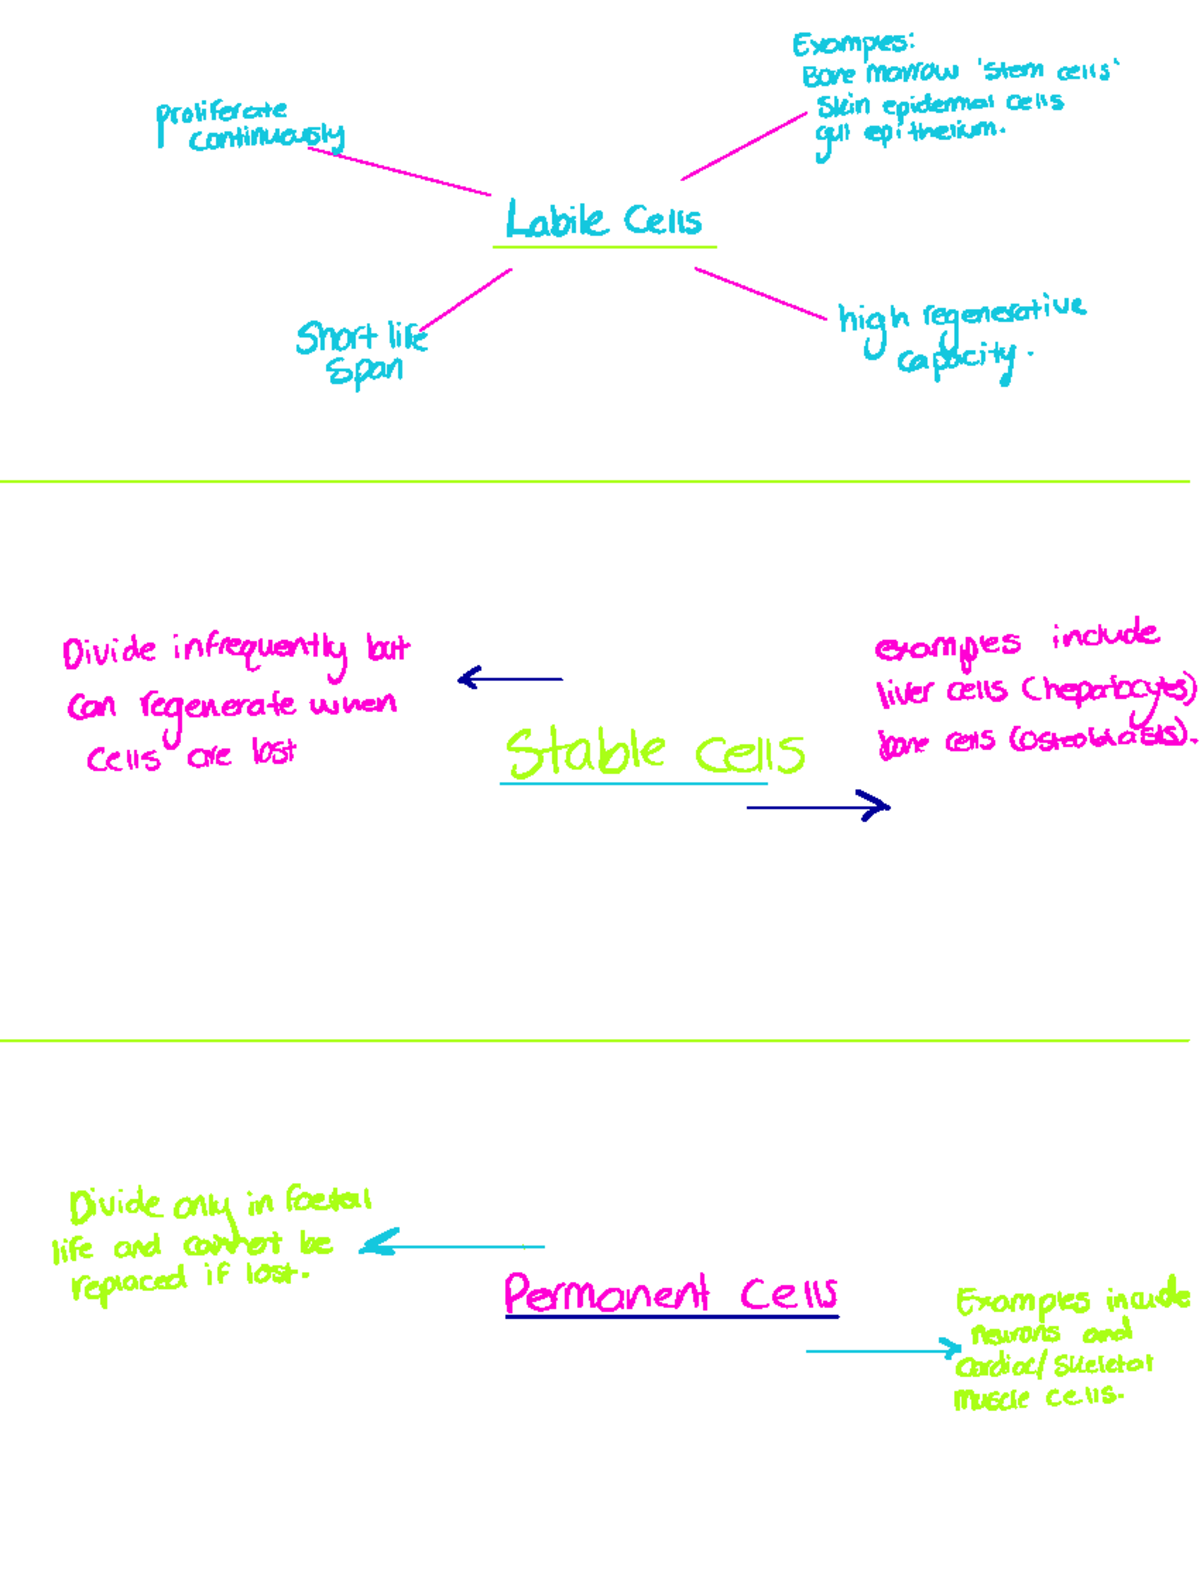 Examples:
Bone marrow 'stem cells'
Skin epidermal cells
gut epithelium.
proliferate
continuously
Labile Cells
Short life
span
high regenerative
capacity.
Divide infrequently but
can regenerate when
cells are lost
Stable cells
examples include
liver cells (hepatocytes)
bone cells (osteoblasts).
Divide only in foetal
life and cannot be
replaced if lost.
Permanent Cells
Examples include
neurons and
cardiac/skeletal
muscle cells.